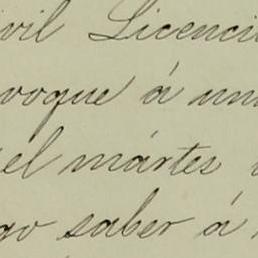 ivil Licenci
voque á un
el mártes
go saber á